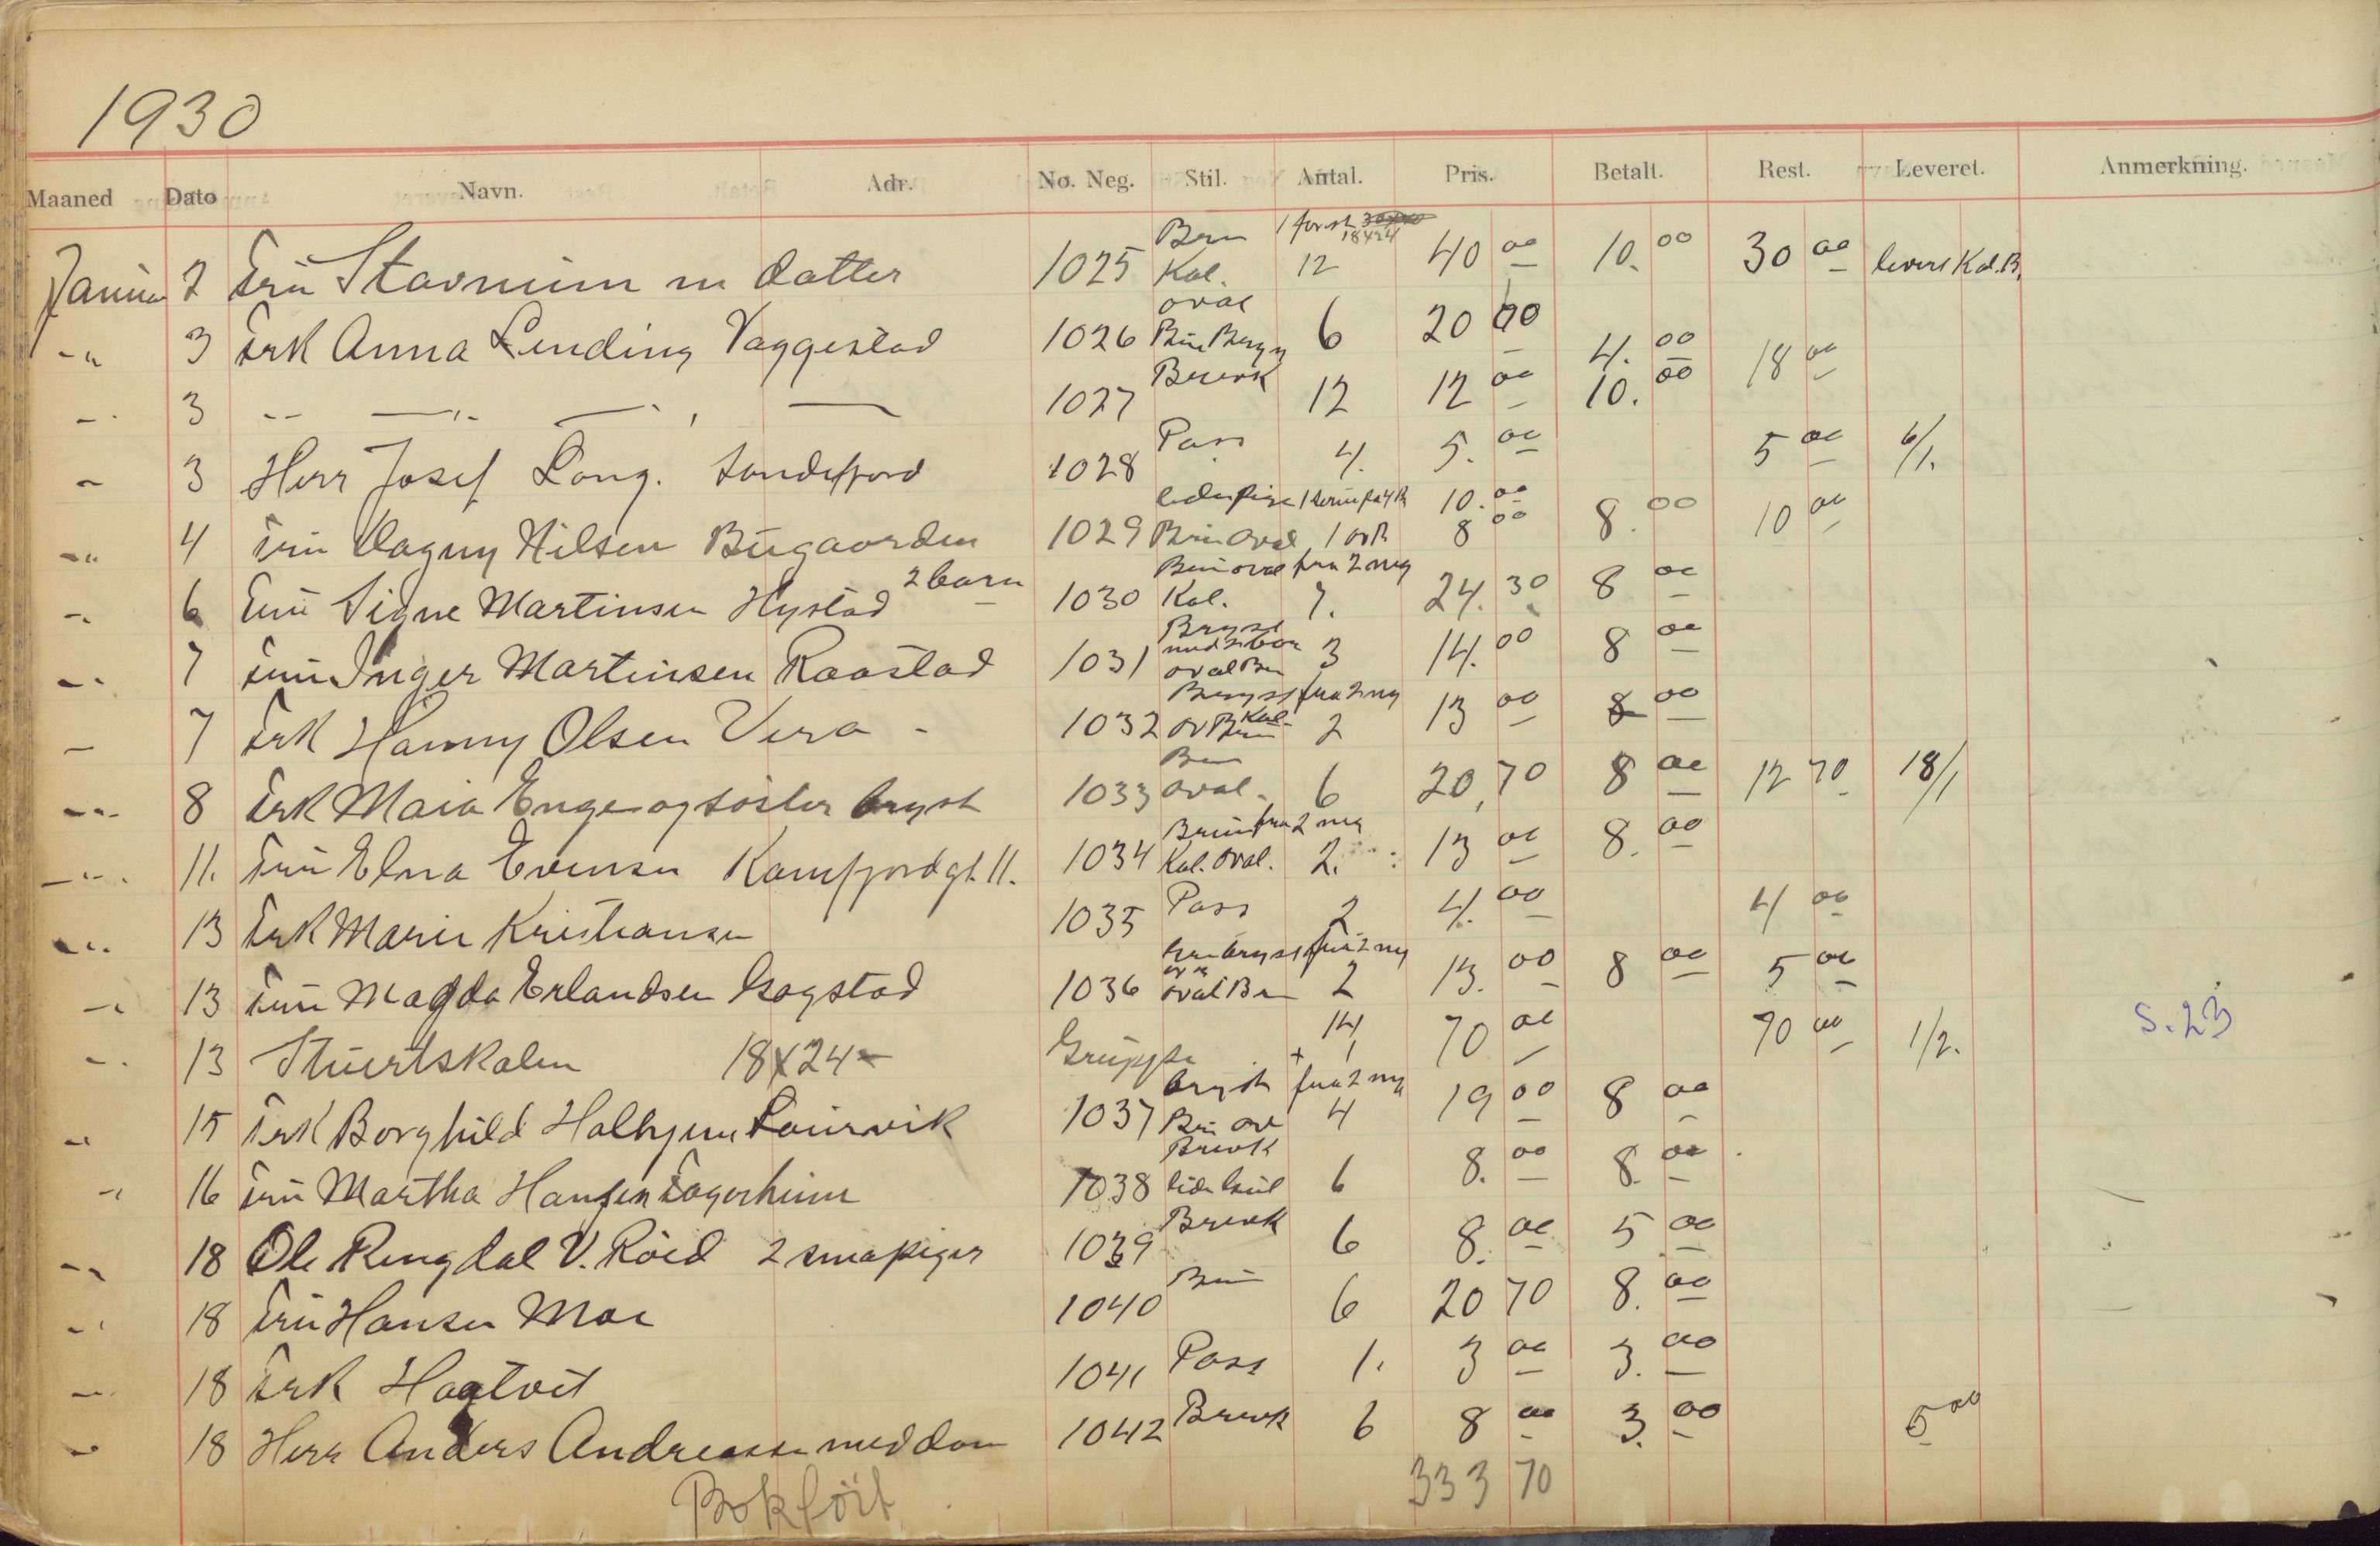 1930
Maaned Dato Navn. Adr. No. Neg. Stil. Antal. Pris. Betalt. Rest. Leveret. Anmerkning.
Januar 2 Fru Stavnum m datter 1025 Brun Kal. 1 forst 18x24 12 40 00 10.00 30 00 levert Kal. B.
-"- 3 Frk Anna Linding Vaggestad 1026 oval Brun Bryst 6 20 00 4.00
- 3 -- -"- - 1027 Brevk 12 12 00 10.00 18 00
- 3 Herr Josef Lang. Sandefjord 1028 Pass 4. 5.00 5 00 6/1.
-"- 4 Fru Dagny Nilsen Bugaarden 1029 Brun Oval 10.00 8 00 8.00 10 00
-"- 6 Fru Signe Martinsen Hystad 2 barn 1030 Brun oval fra 2 neg Kal. 7. 24.30 8 00
-"- 7 Fru Inger Martinsen Raastad 1031 Bryst oval Brun 3 14.00 8 00
- 7 Frk Hanny Olsen Vera - 1032 Bryst fra 2 neg ov Brun Kal. 2 13 00 8 00
-"- 8 Frk Maia Enge og søster bryst 1033 Brun oval. 6 20,70 8 00 12 70 18/1
-"- 11. Fru Elna Evensen Kamfjordgt. 11. 1034 Brun fra 2 neg Kal. oval. 2. 13 00 8.00
-"- 13 Frk Marie Kristiansen 1035 Pass 2 4.00 4 00
-"- 13 Fru Magda Erlandsen Gogstad 1036 bryst fra 2 neg oval Brun 2 13.00 8 00 5 00
-"- 13 Stuertskolen 18x24 Gruppe 14 + 1 70 00 70 00 1/2. S. 23
-"- 15 Frk Borghild Laurvik 1037 bryst fra 2 neg Brun ov 4 19 00 8 00
-"- 16 Fru Martha Hansen Fagerheim 1038 Brevk 6 8.00 8.00
-"- 18 Ole Ringdal V. Röed 2 smapiger 1039 Brevk 6 8.00 5 00
-"- 18 Fru Hansen Moe 1040 Brun 6 20 70 8.00
-"- 18 Frk Hagtvet 1041 Pass 1. 3 00 3.00
-"- 18 Herr Anders Andreassen med dam 1042 Brevk 6 8 00 3.00 5 00
Bokföit 333 70